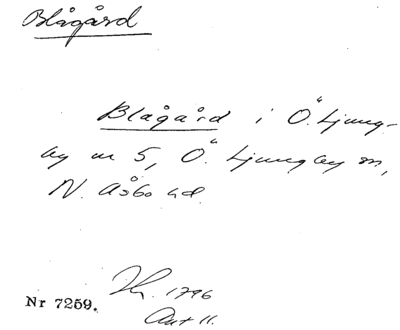 Blågård
Blågård i Ö. Ljung-
by nr 5, Ö. Ljungby sn,
N. Åsbo hd.
Nr 7259. 1796
Akt 11.